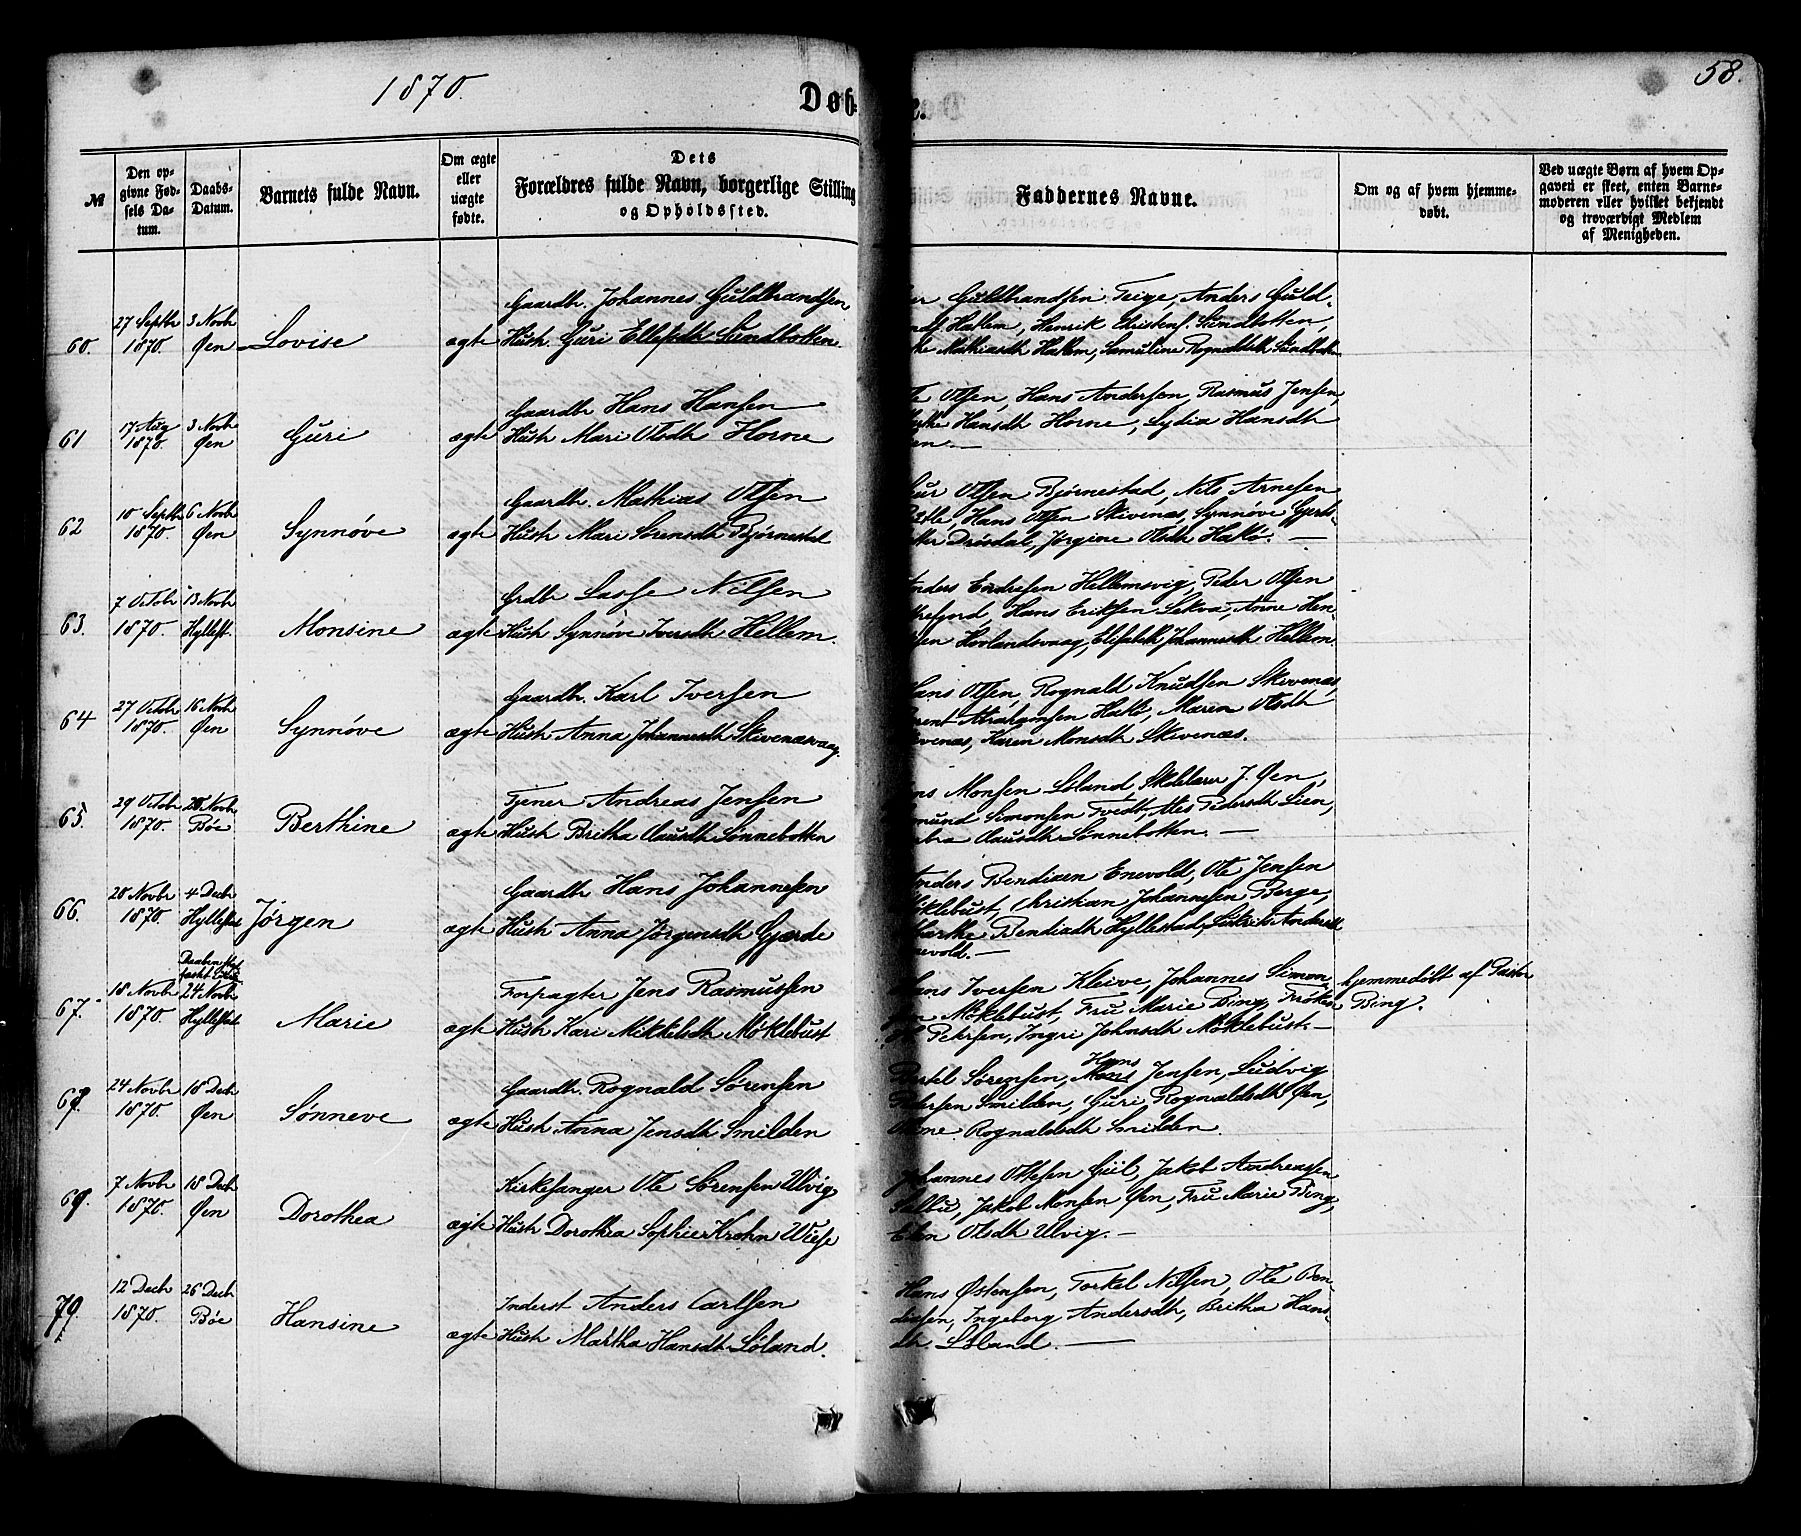 1870.
Døb-
58.
№
Den op-
givne Fød-
sels Da-
tum.
Daabs-
Datum.
Barnets fulde Navn.
Om ægte
eller
uægte
fødte.
Dets
Forældres fulde Navn, borgerlige Stilling
og Opholdssted.
Faddernes Navne.
Om og af hvem hjemme-
døbt.
Ved uægte Børn af hvem Op-
gaven er skeet, enten Barne-
moderen eller hvilket bekjendt
og troværdigt Medlem
af Menigheden.
60. 27 Septbr 1870. 3 Novbr Øen Lovise ægte
Gaardbr. Johannes Guldbrandsen
Hustr. Guri Ellefsdtr Sundbotten.
Guldbrandsen Teige, Anders Guld-
Haklem, Henrik Christens. Sundbotten,
Mathiasdtr Haklem, Samuline Rognaldsdtr
61 17 Aug 1870. 3 Novbr Øen Guri ægte
Gaardbr Hans Hansen
Hustr Mari Olsdtr Horne
Olsen, Hans Andersen, Rasmus Jensen,
Hansdtr Horne, Lydia Hansdtr
en.
62 10 Septbr 1870. 6 Novbr Øen Synnøve ægte
Gaardbr. Mathias Olsen
Hustr Mari Sørensdtr Bjørnestad
Olsen Bjørnestad, Nils Arnesen
Hans Olsen Skivenæs, Synnøve Gjerts-
Drøsdal, Jørgine Olsdtr Haklø.
63. 7 Octobr 1870. 13 Novbr Hyllest. Monsine ægte
Grdbr Lasse Nilsen
Hustr Synnøve Iversdtr Hellem.
Anders Endresen Hellemsvig, Peder Olsen
Hans Eriksen Lekva, Anne Hen-
Hovlandsvaag, Elisabeth Johannesdtr Hellem.
64 27 Octbr 1870. 16 Novbr Øen Synnøve ægte
Gaardbr. Karl Iversen
Hustr Anna Johannesdtr Skivenæsvaag
Hans Olsen, Rognald Knudsen Skivenæs,
Abrahamsen Haklø, Maren Olsdtr
Skivenæs, Karen Monsdtr Skivenæs.
65. 29 Octobr 1870. 20 Novbr Bøe Berthine ægte
Tjener Andreas Jensen
Hustr Britha Clausdtr Sønnebotten
Monsen Løland, Skolelærer J. Øen,
Simonsen Tvedt, Pedersdtr Lien,
Clausdtr Sønnebotten.
66. 20 Novbr 1870. 4 Decbr Hyllestad Jørgen ægte
Gaardbr Hans Johannesen
Hustr Anna Jørgensdtr Gjærde
Anders Bendixen Enevold, Ole Jensen
Møklebust, Christian Johannesen Berge,
Marthe Bendixdtr Hyllestad, Andersdtr
Enevold.
67. 18 Novbr 1870. 24 Novbr Hyllestad Marie ægte
Forpagter Jens Rasmussen
Hustr Kari Mikkelsdtr Møklebust
Hans Iversen Kleive, Johannes Simon-
sen Møklebust, Fru Marie Bing, Frøken
Petersen, Ingri Johnsdtr Møklebust.
hjemmedøbt af Pastor
Bing.
68. 24 Novbr 1870. 18 Decbr Øen Sønneve ægte
Gaardbr. Rognald Sørensen
Hustr Anna Jensdtr Smilden
Bertel Sørensen, Hans Jensen, Ludvig
Pedersen Smilden, Guri Rognaldsdtr Øen,
Rognaldsdtr Smilden.
69. 7 Novbr 1870. 18 Decbr Øen Dorothea ægte
Kirkesanger Ole Sørensen Ulvig
Hustr Dorothea Sophie Krohn Wiese
Johannes Ottesen Giil, Jakob Andreassen
Salbu, Jakob Monsen Øen, Fru Marie Bing,
Elen Olsdtr Ulvig.
70. 12 Decbr 1870. 26 Decbr Bøe Hansine ægte
Inderst Anders Carlsen
Hustr Martha Hansdtr Løland.
Hans Østensen, Torkel Nilsen, Ole Ben-
dixsen, Ingeborg Andersdtr, Britha Hans-
dtr. Løland.